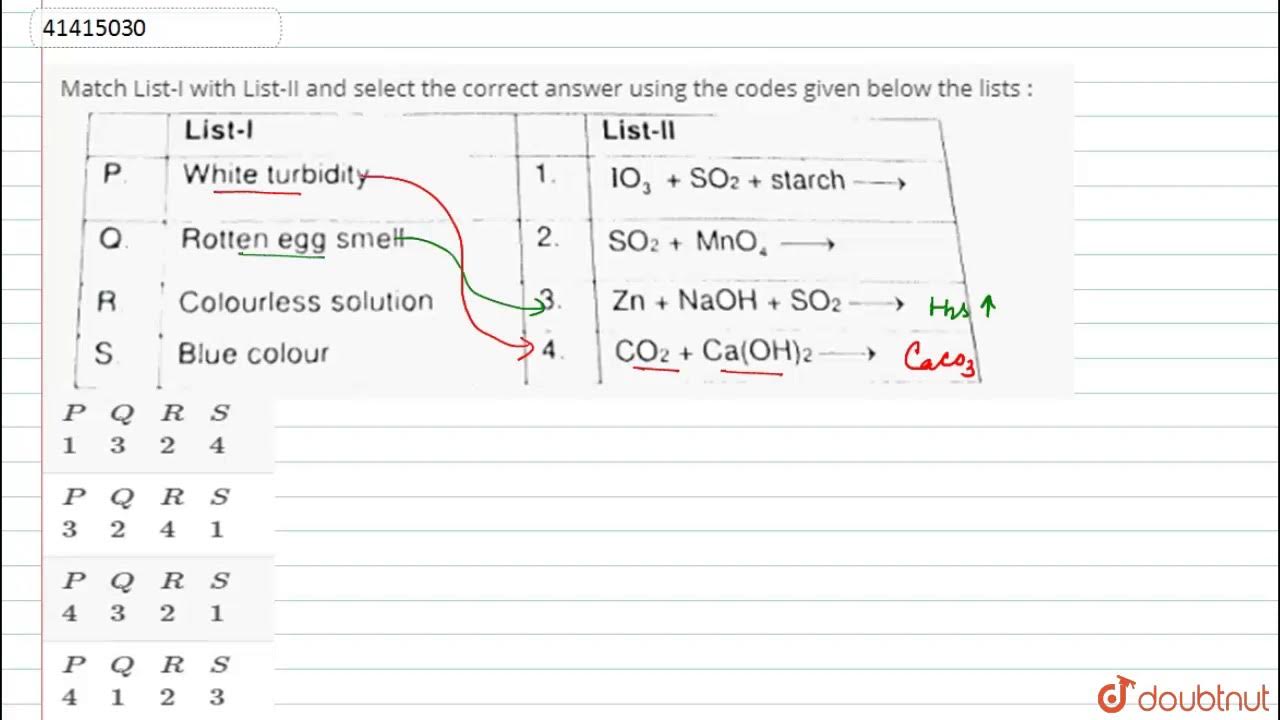 41415030
Match List-I with List-II and select the correct answer using the codes given below the lists :
List-I List-II
P. White turbidity 1. IO₃ + SO₂ + starch ⟶
Q. Rotten egg smell 2. SO₂ + MnO₄ ⟶
R Colourless solution 3. Zn + NaOH + SO₂ ⟶ H₂S ↑
S. Blue colour 4. CO₂ + Ca(OH)₂ ⟶ CaCO₃
P Q R S
1 3 2 4
P Q R S
3 2 4 1
P Q R S
4 3 2 1
P Q R S
4 1 2 3
doubtnut